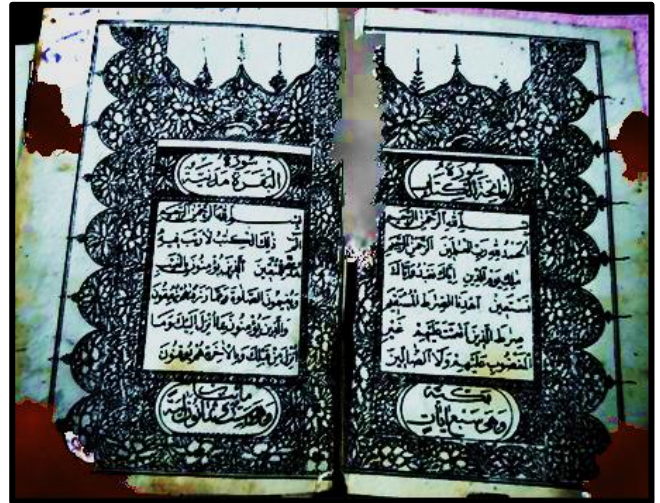 سورة
فاتحة الكتاب
بسم الله الرحمن الرحيم
الحمد لله رب العلمين الرحمن الرحيم
ملك يوم الدين إياك نعبد وإياك
نستعين اهدنا الصراط المستقيم
صراط الذين أنعمت عليهم غير
المغضوب عليهم ولا الضالين
مكية
وهي سبع آيات
سورة
البقرة مدنية
بسم الله الرحمن الرحيم
الم ذلك الكتب لا ريب فيه
هدى للمتقين الذين يؤمنون بالغيب
ويقيمون الصلوة ومما رزقنهم ينفقون
والذين يؤمنون بما أنزل إليك وما
أنزل من قبلك وبالآخرة هم يوقنون
وهي آية